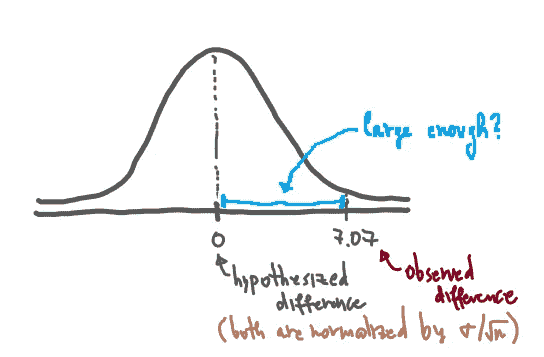 large enough?
0
7.07
hypothesized
difference
observed
difference
(both are normalized by σ/√n)